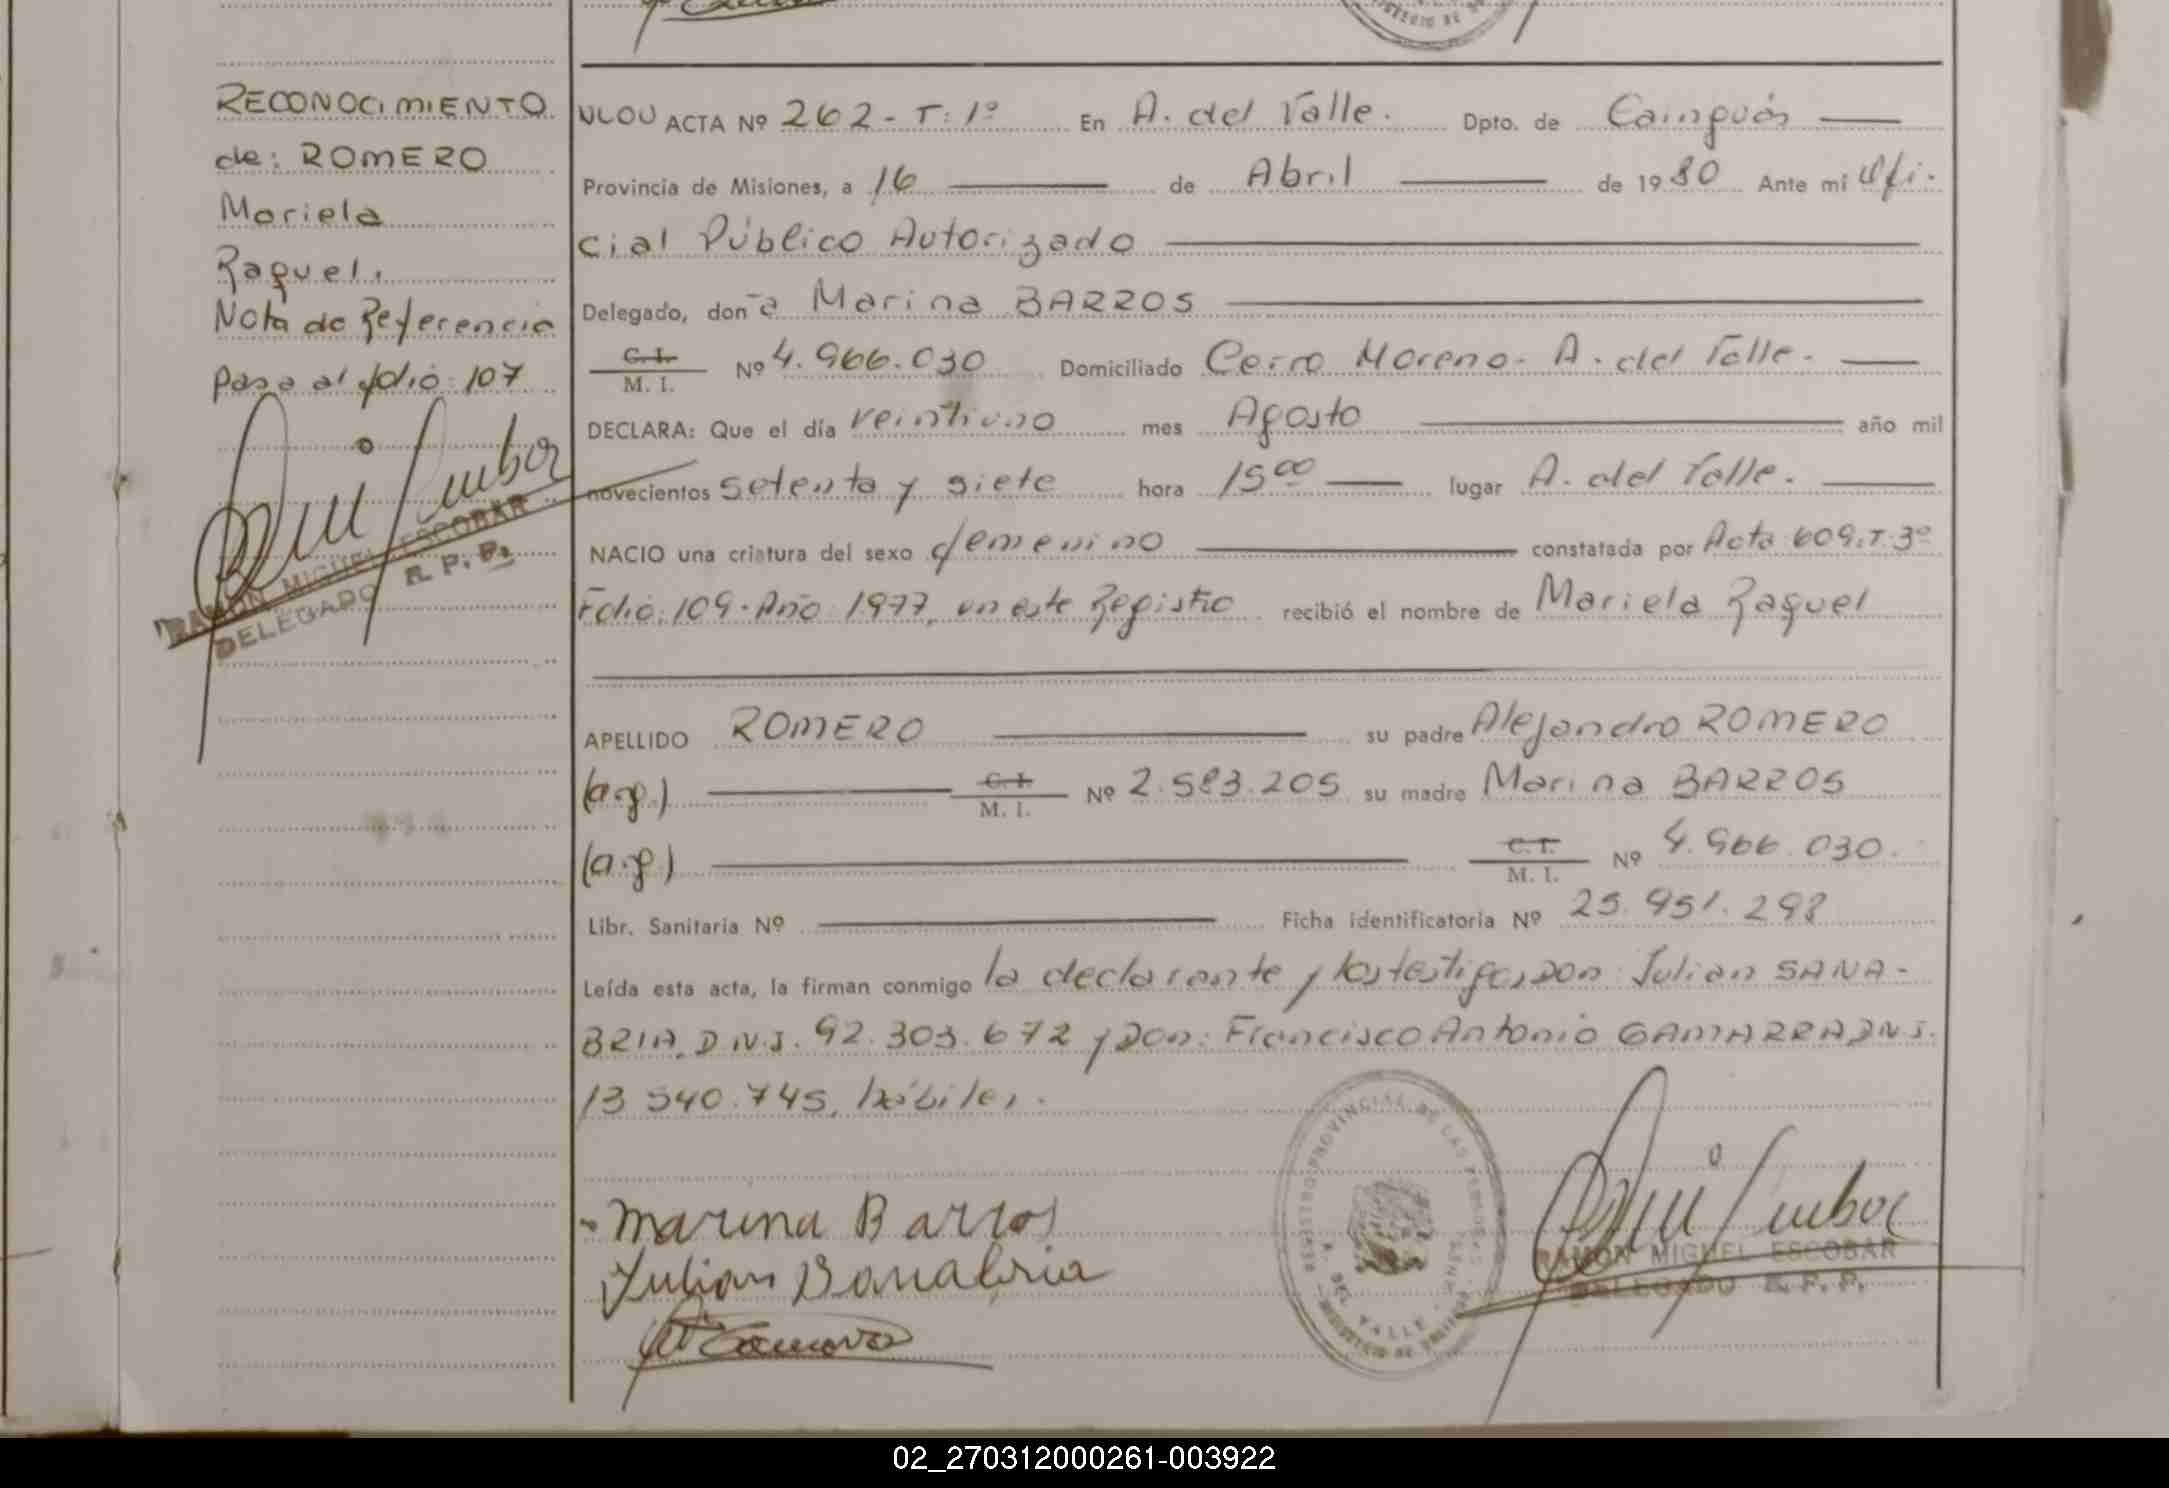 RECONOCIMIENTO
de: ROMERO
Mariela
Raquel.
Nota de Referencia
pasa al folio: 107
RAMON MIGUEL ESCOBAR
DELEGADO R. P. P.
ACTA Nº 262 - T: 1º En A. del Valle. Dpto. de Cainguás
Provincia de Misiones, a 16 de Abril de 1980 Ante mi Ofi-
cial Público Autorizado
Delegado, donña Marina BARROS
C. I.
M. I. Nº 4.966.030 Domiciliado Cerro Moreno - A. del Valle.
DECLARA: Que el día veintiuno mes Agosto año mil
novecientos setenta y siete hora 15 00 lugar A. del Valle.
NACIO una criatura del sexo femenino constatada por Acta 609. T. 3º
Folio: 109 - Año 1977, en este Registro recibió el nombre de Mariela Raquel
APELLIDO ROMERO su padre Alejandro ROMERO
(arg.) C. I.
M. I. Nº 2.583.205 su madre Marina BARROS
(arg.) C. I.
M. I. Nº 4.966.030.
Libr. Sanitaria Nº Ficha identificatoria Nº 25.951.298
Leída esta acta, la firman conmigo la declarante y los testigos, Don: Julian SANA-
BRIA, D.N.I. 92.303.672 y Don: Francisco Antonio GAMARRA D.N.I.
13.540.745, hábiles.
Marina Barros
Julian Sanabria
REGISTRO PROVINCIAL DE LAS PERSONAS
A. DEL VALLE
MINISTERIO DE GOBIERNO
RAMON MIGUEL ESCOBAR
DELEGADO R. P. P.
02_270312000261-003922